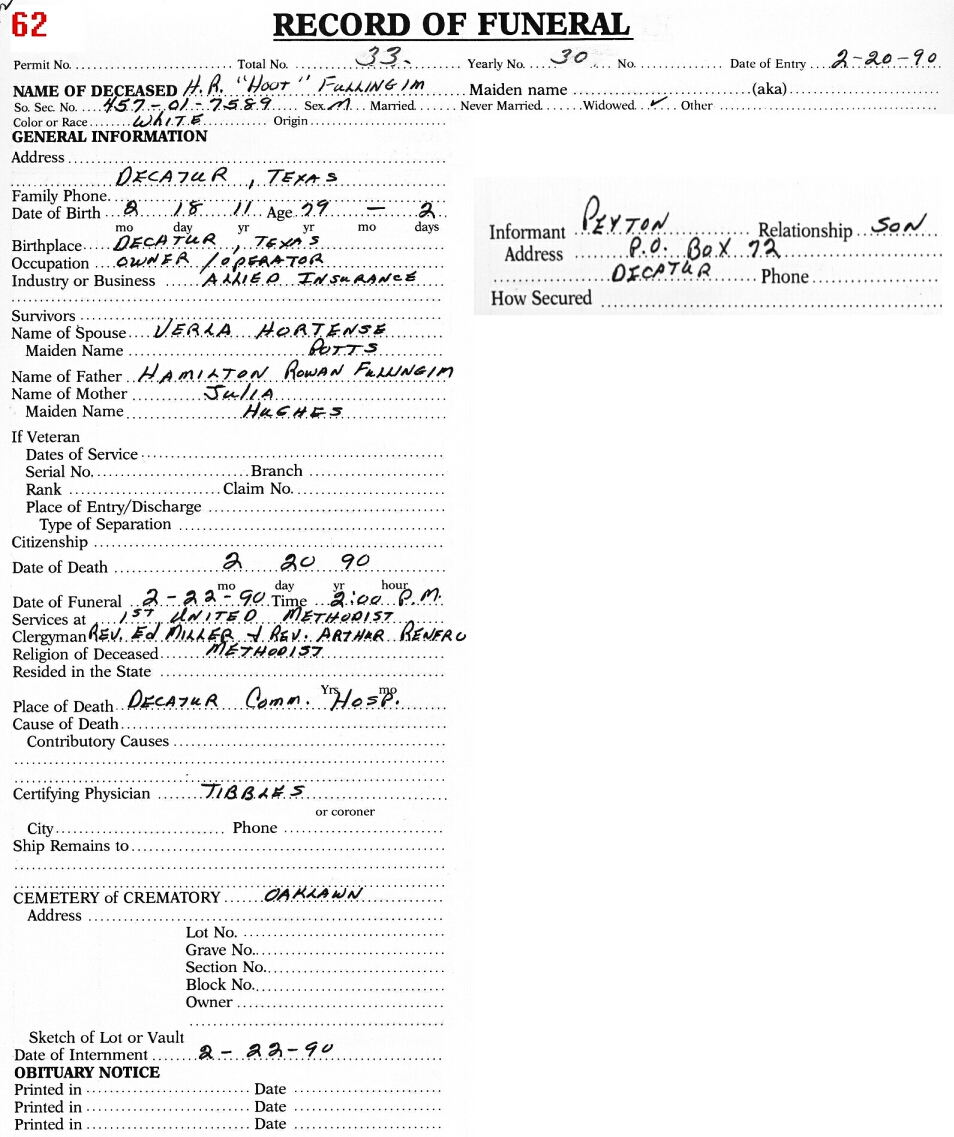 62
RECORD OF FUNERAL
Permit No. Total No. 33. Yearly No. 30 No. Date of Entry 2-20-90
NAME OF DECEASED H.R. "HOOT" FULLINGIM Maiden name (aka)
So. Sec. No. 457-01-7589 Sex M Married Never Married Widowed ✓ Other
Color or Race WHITE Origin
GENERAL INFORMATION
Address
DECATUR, TEXAS
Family Phone
Date of Birth 2 18 11 Age 79 — 2
mo day yr yr mo days
Birthplace DECATUR, TEXAS
Occupation OWNER/OPERATOR
Industry or Business ALLIED INSURANCE
Survivors
Name of Spouse VERLA HORTENSE
Maiden Name POTTS
Name of Father HAMILTON ROWAN FULLINGIM
Name of Mother JULIA
Maiden Name HUGHES
If Veteran
Dates of Service
Serial No. Branch
Rank Claim No.
Place of Entry/Discharge
Type of Separation
Citizenship
Date of Death 2 20 90
mo day yr hour
Date of Funeral 2-22-90 Time 2:00 P.M.
Services at 1ST UNITED METHODIST
Clergyman REV. ED MILLER & REV. ARTHAR RENFRO
Religion of Deceased METHODIST
Resided in the State
Yrs mo
Place of Death DECATUR COMM. HOSP.
Cause of Death
Contributory Causes
Certifying Physician TIBBLES
or coroner
City Phone
Ship Remains to
CEMETERY of CREMATORY OAKLAWN
Address
Lot No.
Grave No.
Section No.
Block No.
Owner
Sketch of Lot or Vault
Date of Internment 2-22-90
OBITUARY NOTICE
Printed in Date
Printed in Date
Printed in Date
Informant PEYTON Relationship SON
Address P.O. BOX 72
DECATUR Phone
How Secured